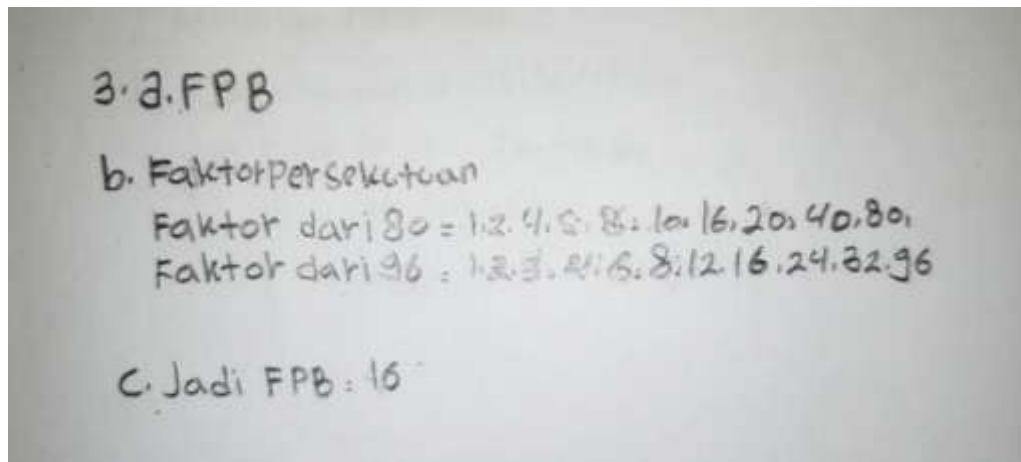 3. a. FPB
b. Faktor persekutuan
Faktor dari 80 = 1. 2. 4. 5. 8. 10. 16, 20, 40, 80,
Faktor dari 96 = 1. 2. 3. 4. 6. 8. 12. 16. 24. 32. 96
C. Jadi FPB : 16